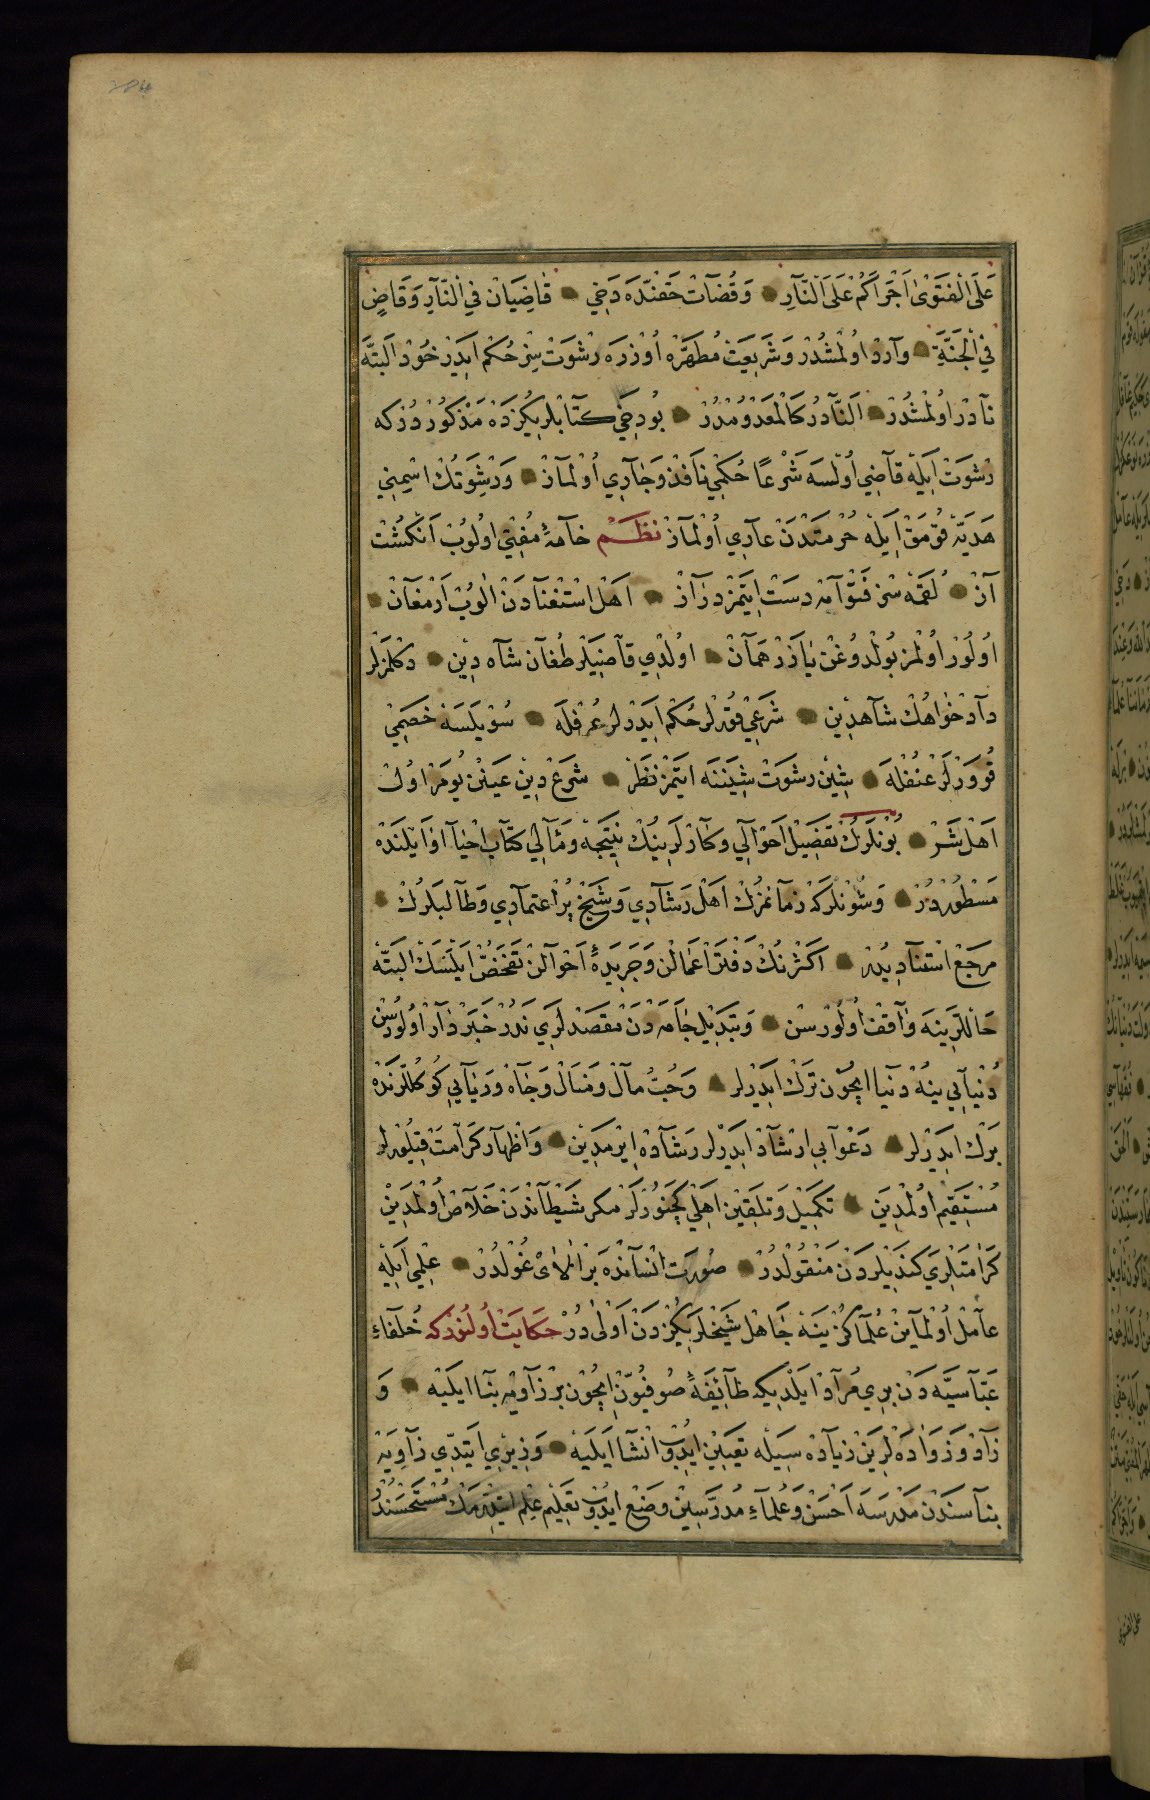 عَلَی الْفَتْوٰی اَجْرَاَکُمْ عَلَی النَّارِ وَقُضَاتْ حَقِنْدَه دَخِي قَاضِيَانِ فِي النَّارِ وَقَاضٍ
فِي الْجَنَّةِ وَارِدْ اولْمِشْدُرْ وَشَرِيعَتْ مُطَهَّرَه اُوزْرَه رِشْوَتْ سِزْ حُكْمْ اِيدَرْ خُودْ اَلْبَتَّه
نَادِرْ اولْمِشْدُرْ اَلنَّادِرُ كَالْمَعْدُومْدُرْ بُو دَخِي كِتَابْلَرِيكُزْدَه مَذْكُورْدُرْكِه
رِشْوَتْ اِيلَه قَاضِي اُولْسَه شَرْعًا حُكْمِي نَافِذْ وَجَارِي اُولْمَازْ وَرِشْوَتُكْ اِسْمِنِي
هَدِيَّه قُومَقْ اِيلَه حُرْمَتْدَنْ عَارِي اُولْمَازْ نظم خَامَهٔ مُفْتِي اولُوبْ اَنْكُشْتْ
آزْ لُقْمَه سِزْ فَتْوَامَه دَسْتْ اِيتْمَزْ دِرَازْ اَهْلِ اسْتِغْنَادَنْ الُوبْ اَرْمَغَانْ
اُولُورْ اُولْمَزْ بُولْدُوغَنْ يَازَرْ هَمَانْ اولْدِي قَاضِيلَرْ طُغَانِ شَاهِ دِين دِكْلَمَزْلَرْ
دَادْخَواهُكْ شَاهِدِين شَرْعِي قُورْلَرْ حُكْمْ اِيدَرْلَرْ عُرْفِلَه سُويْلَسَه خَصْمِي
قُووَرْلَرْ عُنْفِلَه سِينِ رِشْوَتْ شِينَنَه اِيتْمَزْ نَظَرْ شَرْعِ دِين عَينِنْ يُومَرْ اولْ
اَهْلِ شَرْ بُونْلَرُكْ تَفْضِيلِ اَحْوَالِي وَكَارْلَرِينُكْ نَتِيجَه وَمَآلِي كِتَابِ اِحْيَا اوَائِلِنْدَه
مَسْطُورْدُرْ وَشُونْلَرْكِه زَمَانْمُزُكْ اَهْلِ رَشَادِي وَشَيْخِ پُرْ اعْتِمَادِي وَطَالِبْلَرُكْ
مَرْجَعِ اسْتِنَادِيدُرْ اَكْثَرِنُكْ دَفْتَرِ اَعْمَالِنْ وَجَرِيدَهٔ اَحْوَالِنْ تَفَحُّصْ اَيْلَسَكْ اَلْبَتَّه
حَالْلَرِينَه وَاقِفْ اُولُورْسِنْ وَتَبْدِيلِ جَامَه دَنْ مَقْصَدْلَرِي نَدُرْ خَبَرْدَارْ اُولُورْسِنْ
دُنْيَايِي يِنَه دُنْيَا ايچُونْ تَرْكْ اِيدَرْلَر وَحُبِّ مَالْ وَمَنَالْ وَجَاهْ وَرِيَايِي كُوكُللَرِنْدَه
بَرْكْ اِيدَرْلَر دَعْوَايِ ارْشَادْ اِيدَرْلَر رَشَادَه اِيرْمَدِينْ وَاِظْهَارِ كَرَامَتْ قِيلُورْلَر
مُسْتَقِيمْ اولْمَدِينْ تَكْمِيلْ وَتَلْقِينْ اَهْلِي كَچِنُورْلَرْ مَكْرِ شَيْطَانْدَنْ خَلَاصْ اُولْمَدِينْ
كَرَامَتْلَرِي كَنْدِيلَرْدَنْ مَنْقُولْدُرْ صُورَتِ انْسَانْدَه بَرْ اَلَايْ غُولْدُرْ عِلْمِي اِيلَه
عَامِلْ اُولْمَايَنْ عُلَمَاكُزْ يِنَه جَاهِلْ شَيْخْلَرِيكُزْدَنْ اَوْلٰي دُرْ حِكَايَتْ اُولُنُورْكِه خُلَفَاءِ
عَبَّاسِيَّه دَنْ بِرِي مُرَادْ اِيلَدِيكِه طَائِفَهٔ صُوفِيُّونْ اِيچُونْ بِرْ زَاوِيَه بِنَا اِيلَيَه وَ
زَادْ وَزَوَادَه لَرِينْ زِيَادَه سِيلَه تَعْيِينْ اِيدُوبْ اِنْشَا اَيلَيَه وَزِيرِي اِيتْدِي زَاوِيَه
بِنَاسِنْدَنْ مَدْرَسَه اَحْسَنْ وَعُلَمَاءِ مُدَرِّسِينْ وَضْعْ اِيدُوبْ تَعْلِيمِ عِلْمْ اِيتْدِرْمَكْ مُسْتَحْسَنْدُرْ